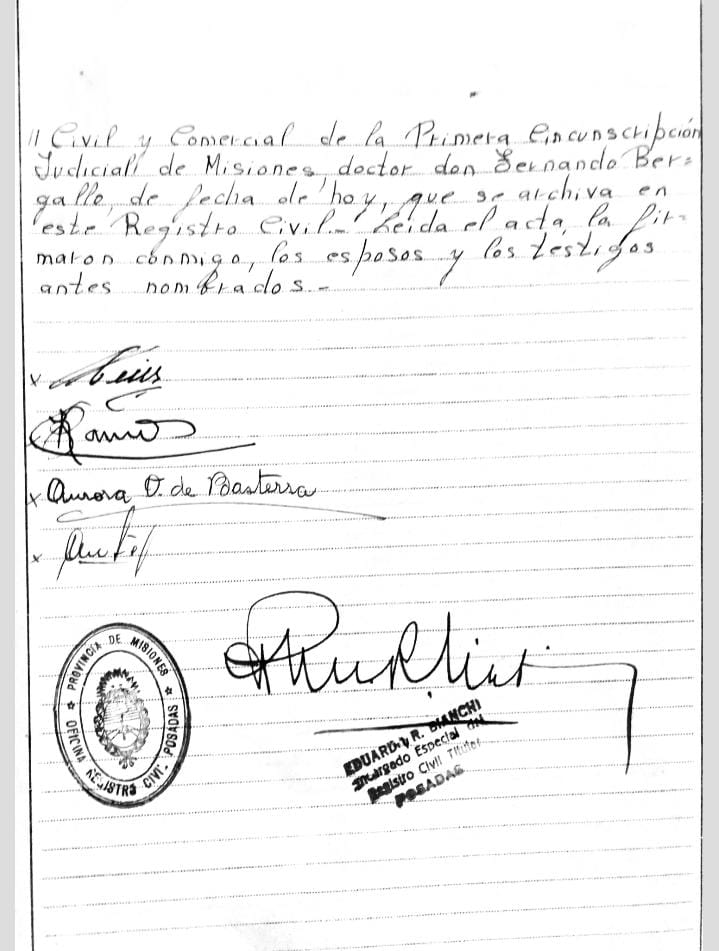 // Civil y Comercial de la Primera Circunscripción
Judicial de Misiones, doctor don Fernando Ber=
gallo, de fecha de hoy, que se archiva en
este Registro Civil.- Leida el acta, la fir-
maron conmigo, los esposos y los testigos
antes nombrados.-
x
x Aurora O. de Basterra
x
PROVINCIA DE MISIONES
OFICINA REGISTRO CIVIL POSADAS
EDUARDO R. BIANCHI
Encargado Especial del
Registro Civil Titular
POSADAS